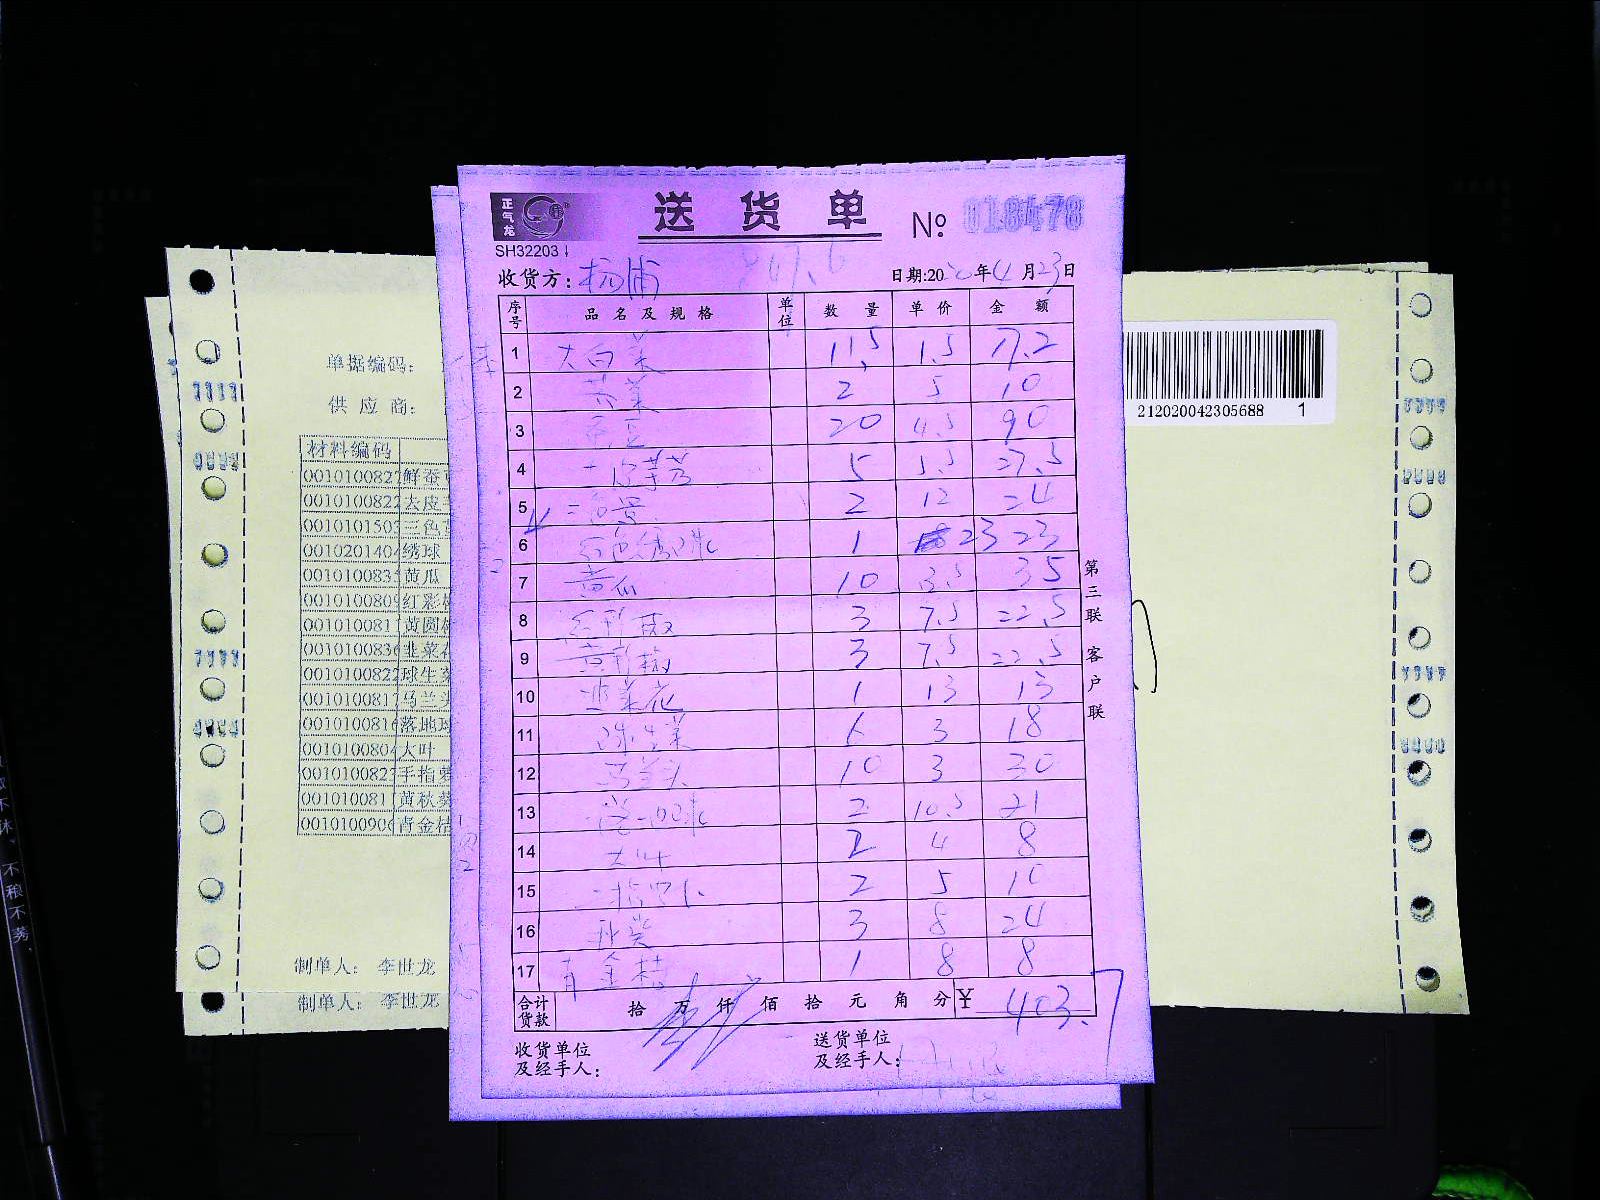 正气龙
送货单
No 018478
SH32203
收货方: 杨浦
日期:2020年4月23日
序号 品名及规格 单位 数量 单价 金额
1 大白菜 11.5 1.5 17.2
2 2 5 10
3 20 4.5 90
4 5 5.5 27.5
5 2 12 24
6 红色绣球 1 23 23
7 黄瓜 10 3.5 35
8 红彩椒 3 7.5 22.5
9 黄彩椒 3 7.5 22.5
10 韭菜花 1 13 13
11 球生菜 6 3 18
12 马兰头 10 3 30
13 2 10.5 21
14 大叶 2 4 8
15 2 5 10
16 秋葵 3 8 24
17 青金桔 1 8 8
合计货款 拾 万 仟 佰 拾 元 角 分 ¥ 403.7
收货单位及经手人:
送货单位及经手人:
第三联 客户联
单据编码:
供应商:
材料编码
0010100827 鲜蚕
0010100822 去皮
0010101503 三色
0010201404 绣球
0010100835 黄瓜
0010100809 红彩
0010100811 黄圆
0010100836 韭菜
0010100822 球生
0010100817 马兰
0010100816 落地
0010100804 大叶
0010100827 手指
0010100811 黄秋
0010100906 青金桔
制单人: 李世龙
制单人: 李世龙
212020042305688 1